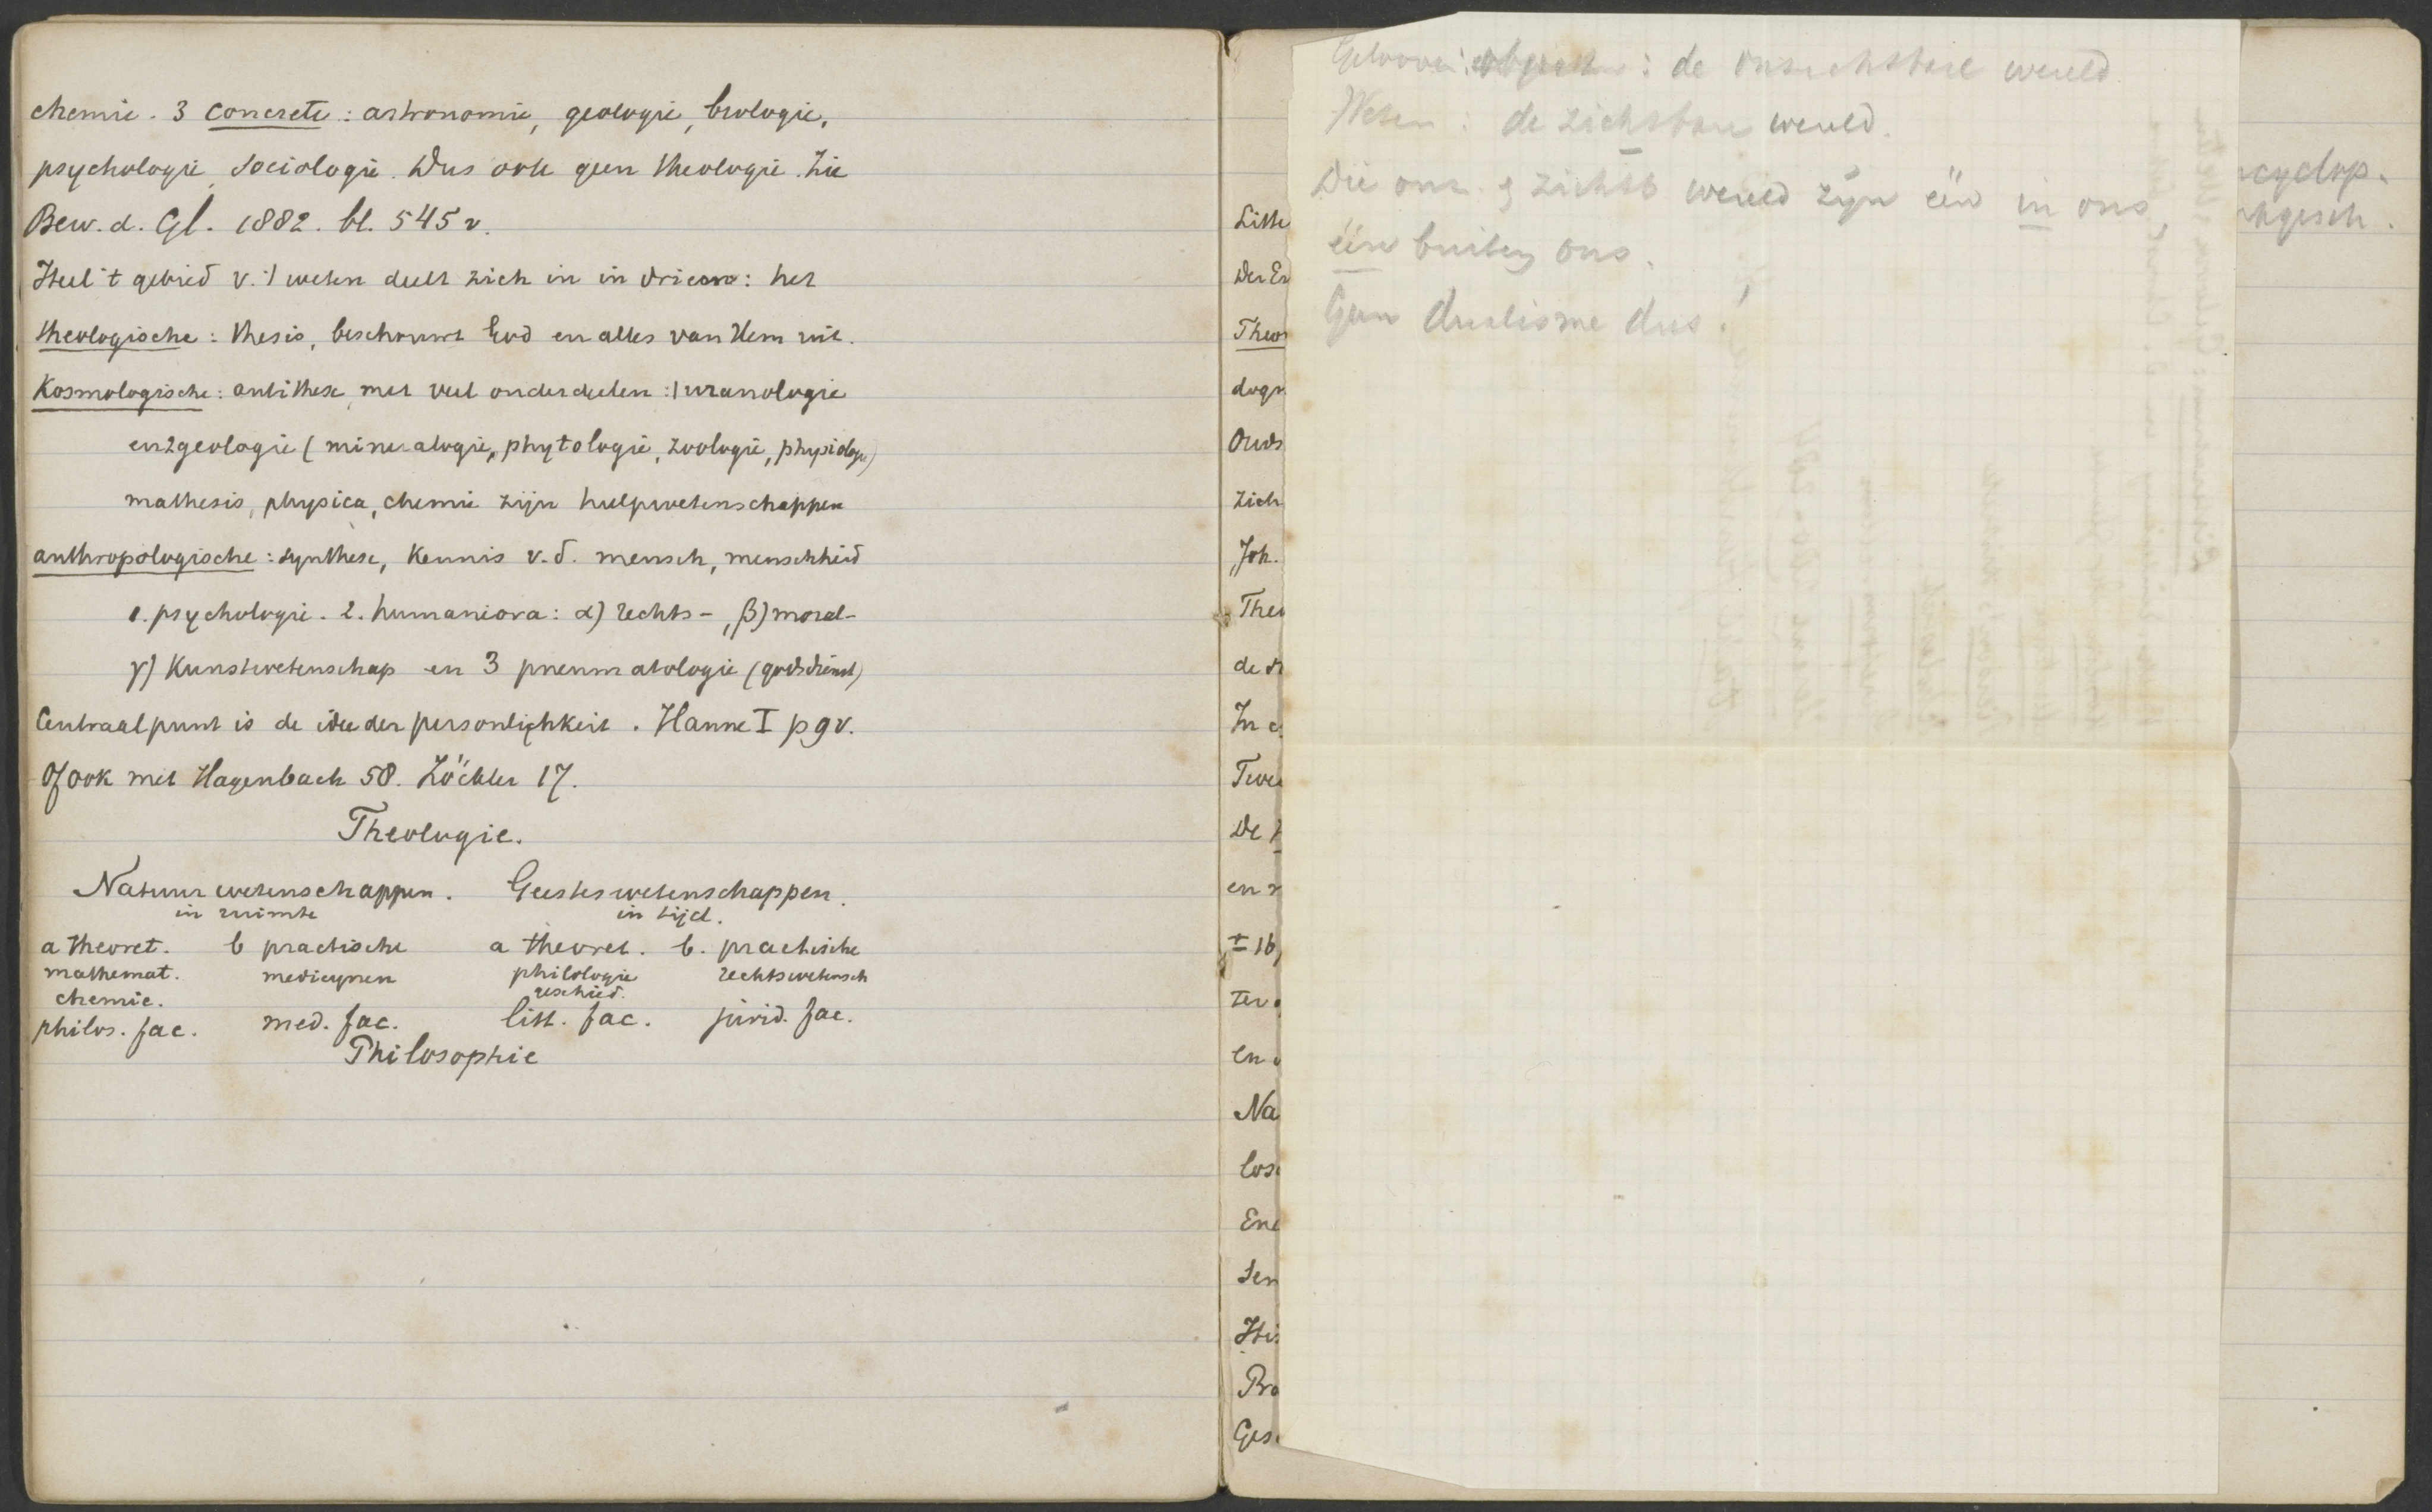 chemie. 3 concrete: astronomie, geologie, biologie,
psychologie, sociologie. Dus ook geen theologie. Zie
Bew. d. Gl. 1882. bl. 545 v.
Heel 't gebied v. 't weten deelt zich in in drieën: het
theologische: thesis, beschouwt God en alles van Hem uit.
Kosmologische: antithese, met veel onderdeelen: 1 uranologie
en 2 geologie (mineralogie, phytologie, zoologie, physiologie)
mathesis, physica, chemie zijn hulpwetenschappen
anthropologische: synthese, kennis v. d. mensch, menschheid
1. psychologie. 2. humaniora: α) rechts-, β) moral-
γ) Kunstwetenschap en 3 pneumatologie (godsdienst)
Centraalpunt is de idee der persönlichkeit. Hanne I p 9 v.
Of ook met Hagenbach 58. Zöckler 17.
Theologie.
Natuurwetenschappen. Geesteswetenschappen.
in ruimte in tijd.
a theoret. b practische a theoret. b. practische
mathemat. medicynen philologie rechtswetensch
chemie. geschied.
philos. fac. med. fac. litt. fac. jurid. fac.
Philosophie
Gelooven: : de onzichtbare wereld
Weten: de zichtbare wereld.
Die onz. & zichtb wereld zijn één in ons,
één buiten ons.
Geen dualisme dus!
ncyclop.
Litte
Der En
Theo
dogm
Ouds
zich
Joh.
Theo
de
In
Twee
De
en
± 16
ter
en
Na
los
Enc
Sem
His
Pro
Ges